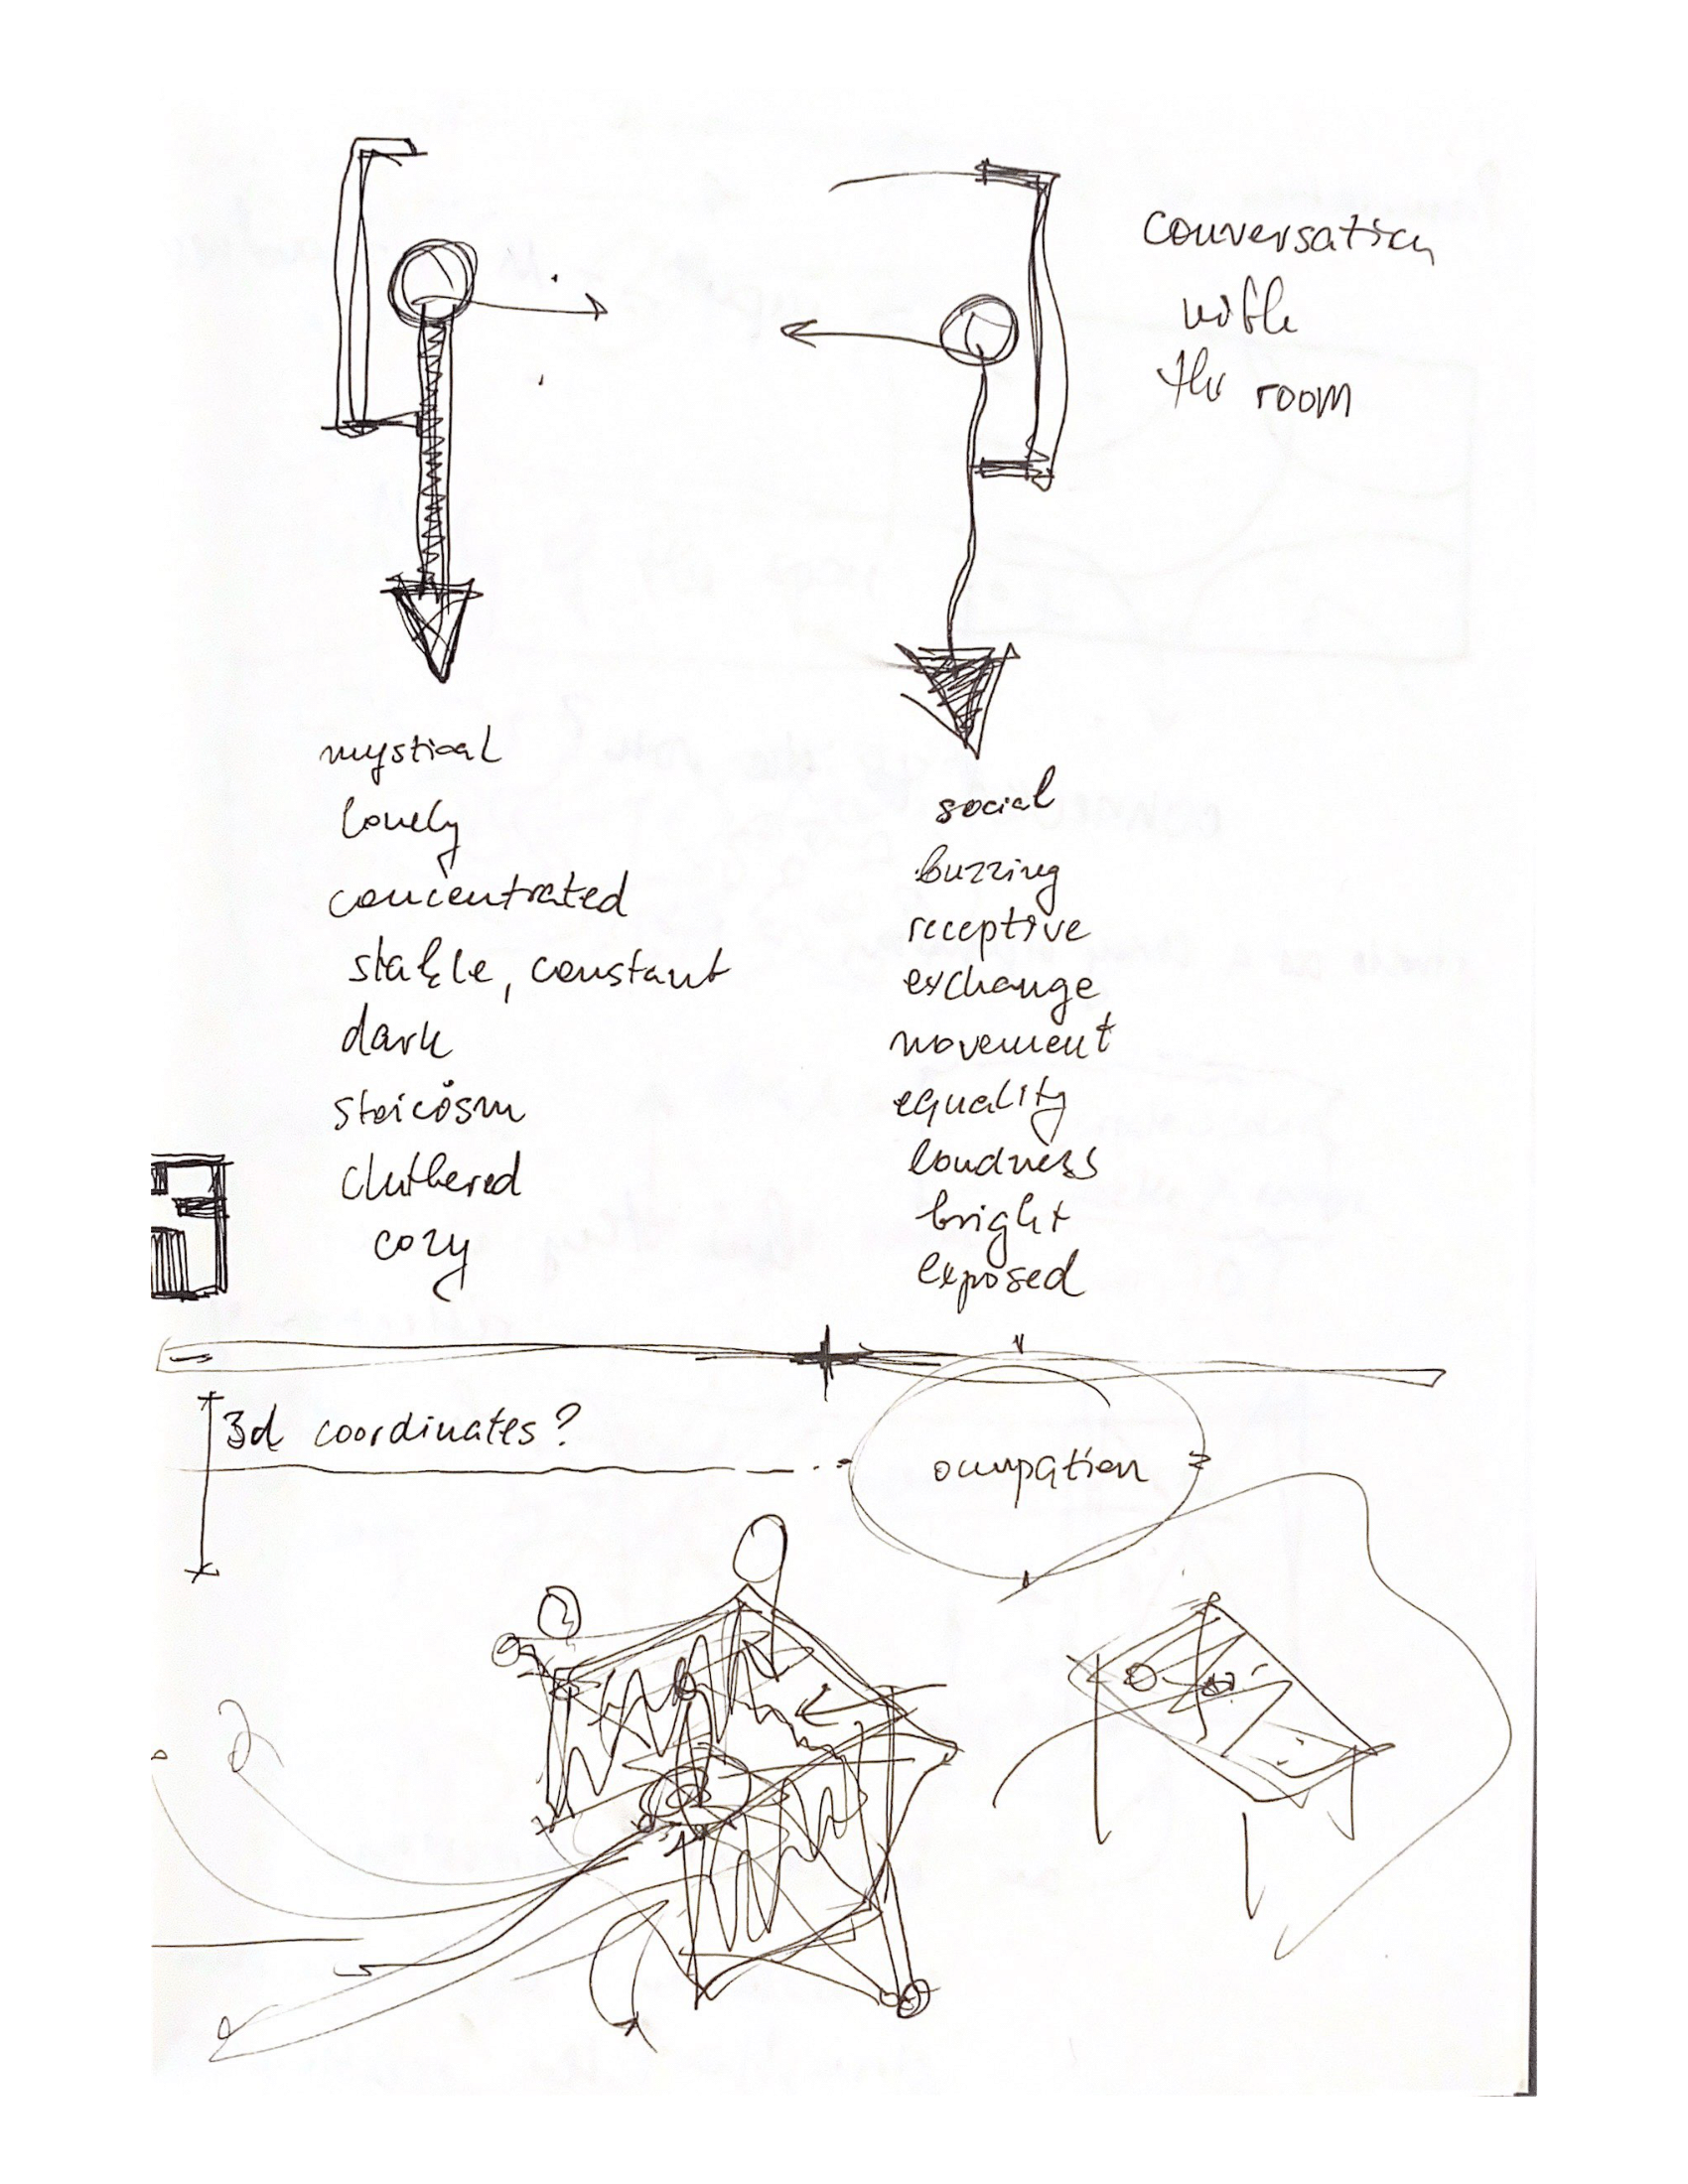 conversation
with
the room
mystical
lonely
concentrated
stable, constant
dark
stoicism
cluthered
cozy
social
buzzing
receptive
exchange
movement
equality
loudness
bright
exposed
3d coordinates?
ocupation